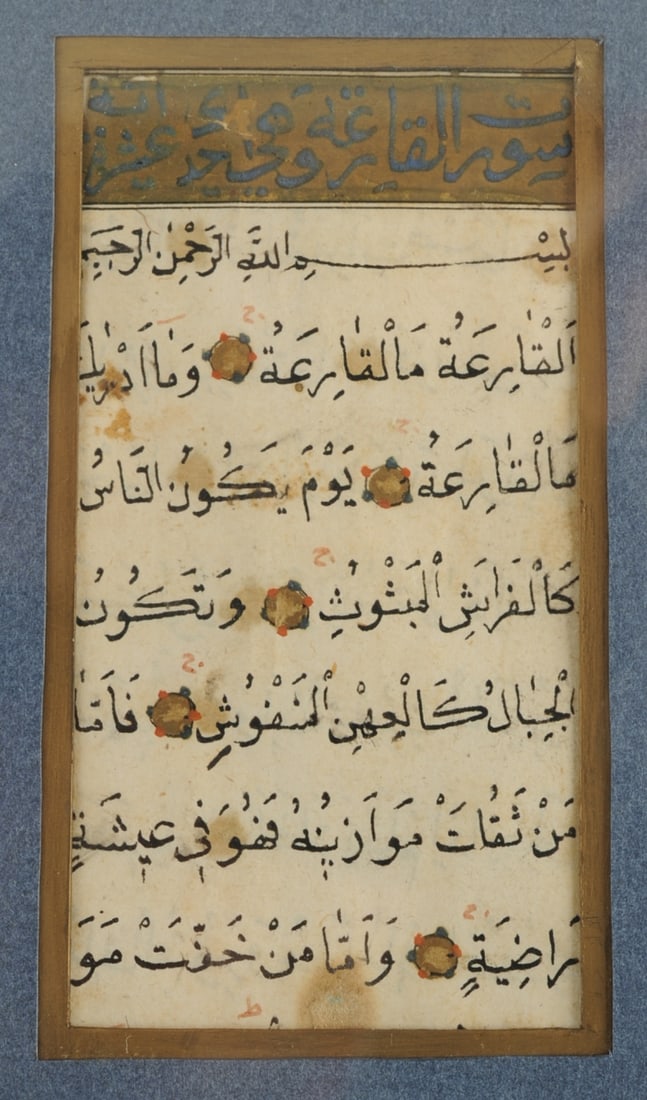 سورت القارعة وهي احدى عشرة آية
بِسْمِ اللَّهِ الرَّحْمٰنِ الرَّحِيمِ
اَلْقٰارِعَةُ مَالْقٰارِعَةُ وَمٰا اَدْرٰيكَ
مَالْقٰارِعَةُ يَوْمَ يَكُونُ النَّاسُ
كَالْفَرَاشِ الْمَبْثُوثِ وَتَكُونُ
الْجِبٰالُ كَالْعِهْنِ الْمَنْفُوشِ فَاَمَّا
مَنْ ثَقُلَتْ مَوَازِينُهُ فَهُوَ فِي عِيشَةٍ
رَاضِيَةٍ وَاَمَّا مَنْ خَفَّتْ مَوَ
ط